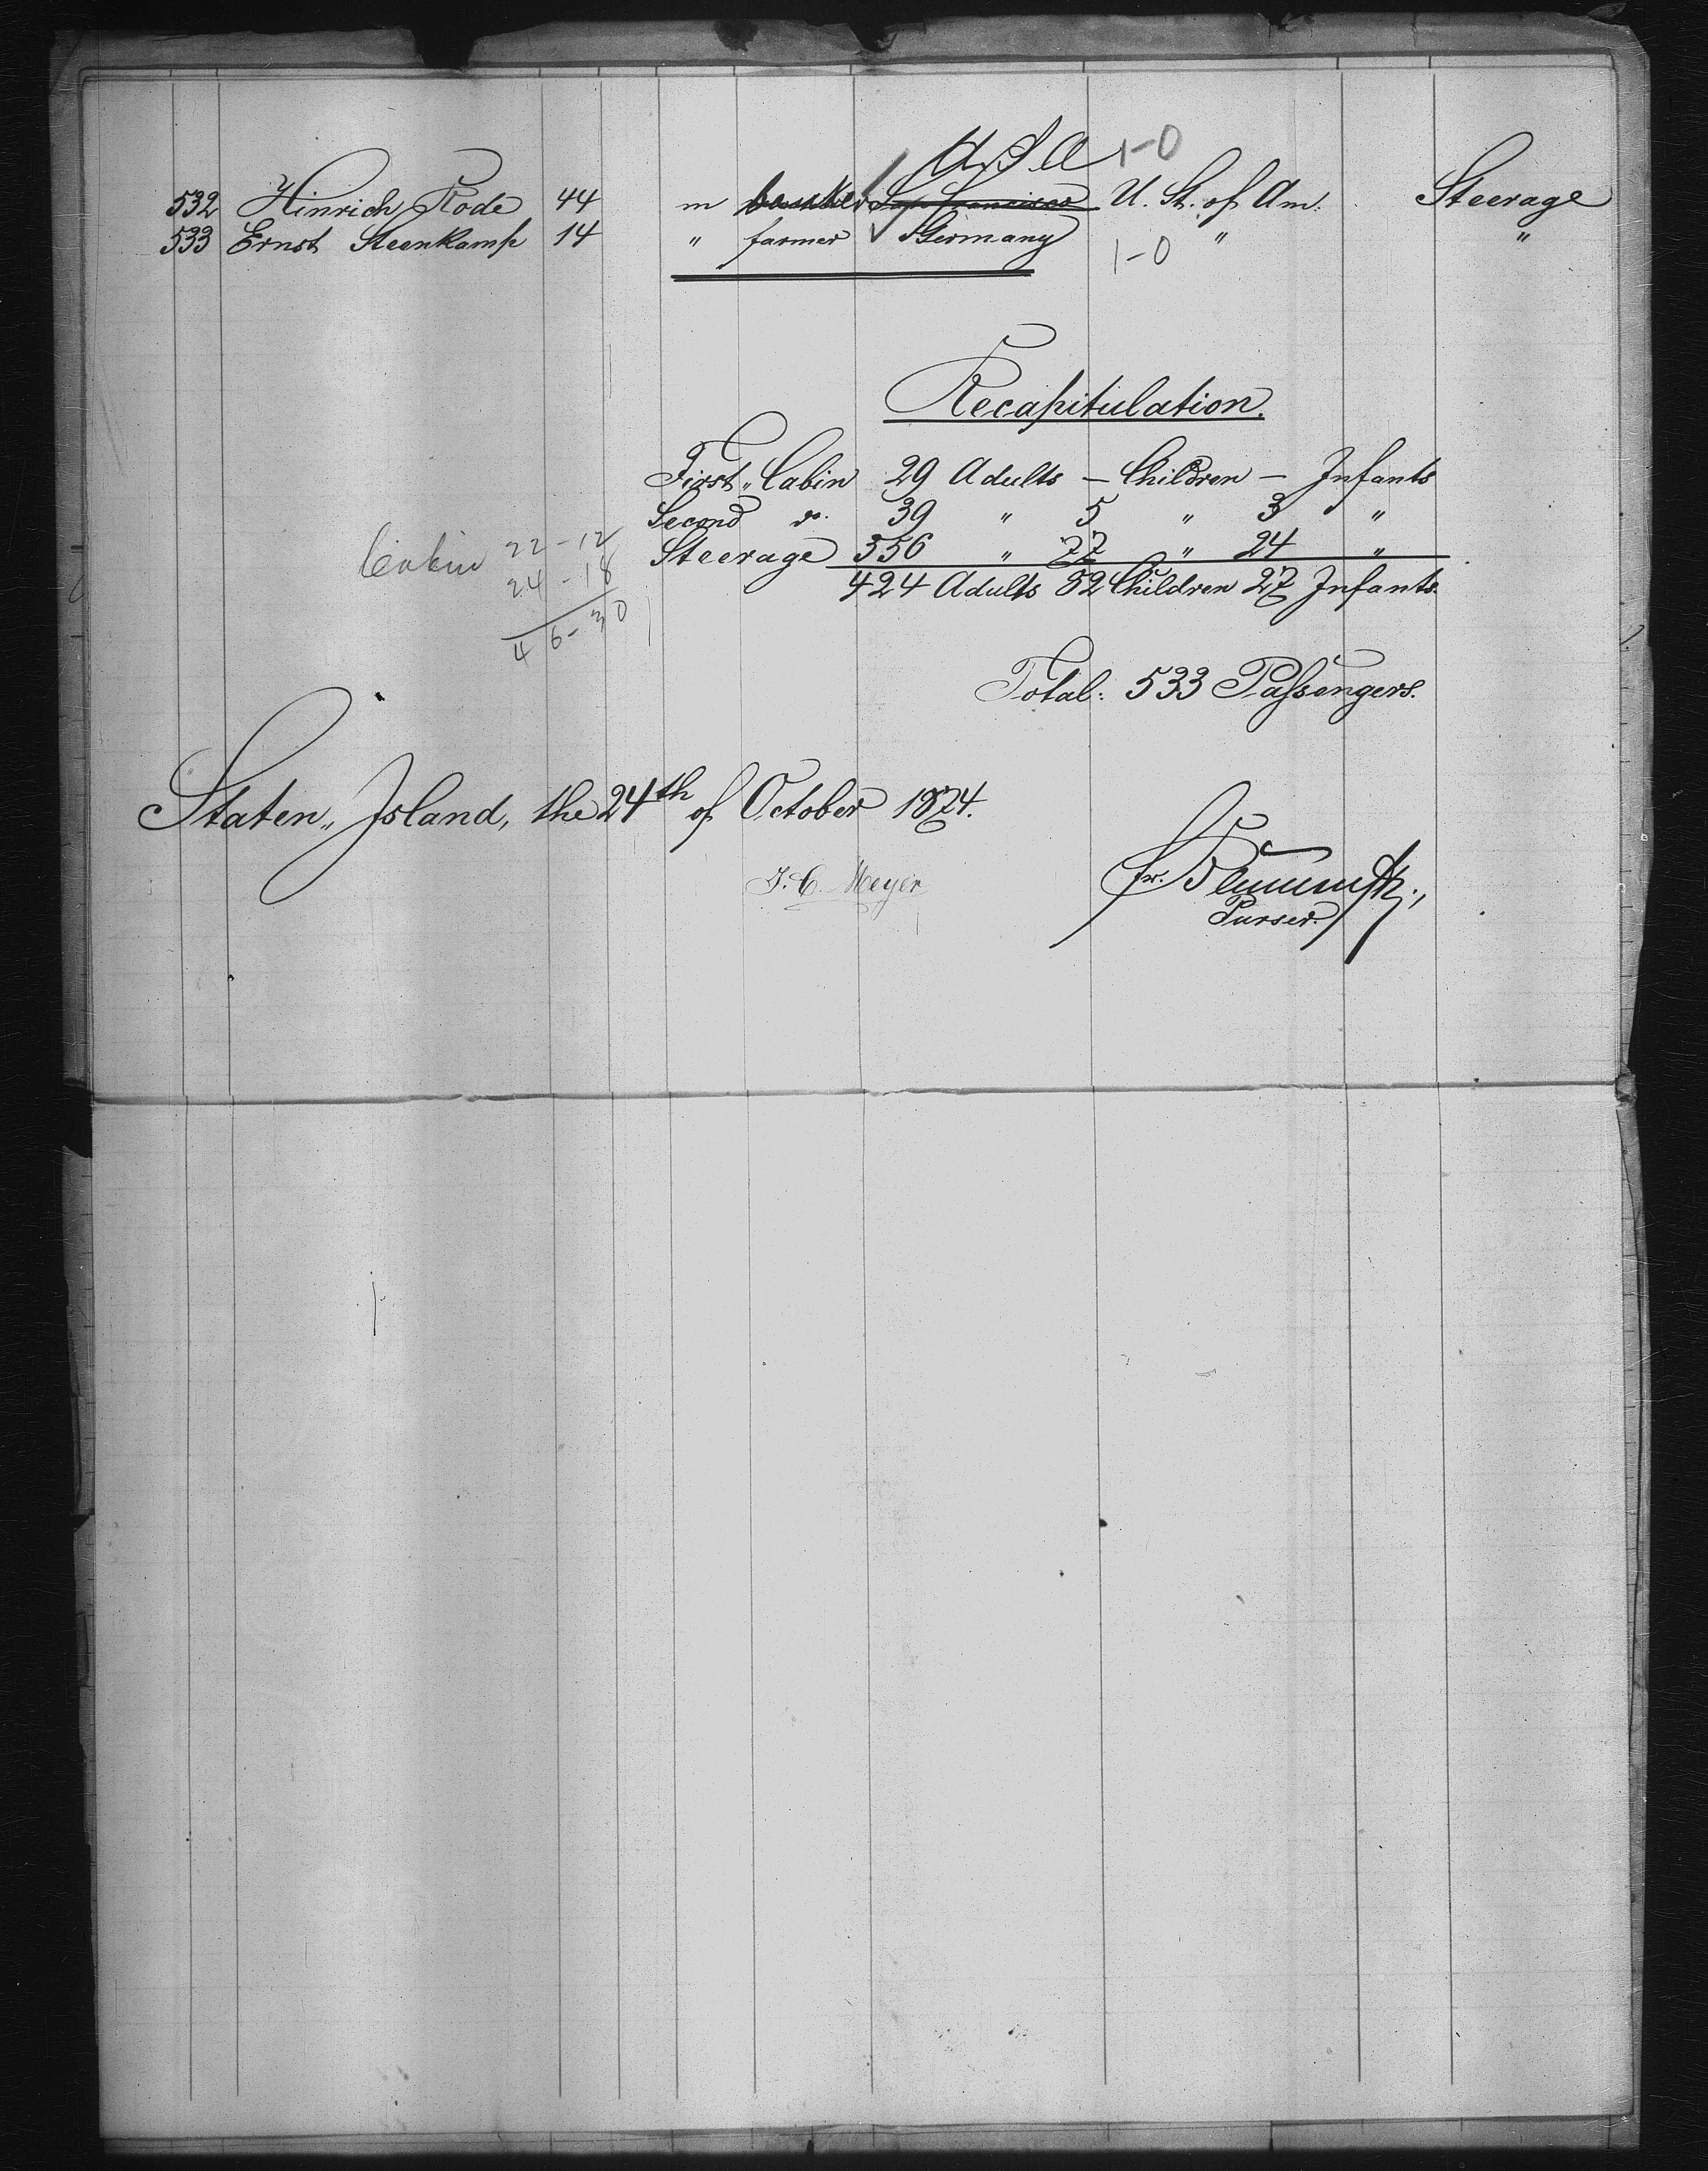 U.S.A 1-0
532 Hinrich Rode 44 m San Francisco U. St. of Am. Steerage
533 Ernst Steenkamp 14 " farmer Germany " "
1-0
Recapitulation.
First " Cabin 29 Adults — Children — Infants
Second do. 39 " 5 " 3 "
Steerage 356 " 77 " 24 "
424 Adults 82 Children 27 Infants.
Cabin 22 - 12
24 - 18
46 - 30
Total: 533 Passengers.
Staten " Island, the 24th of October 1874.
J. C. Meyer
Purser.